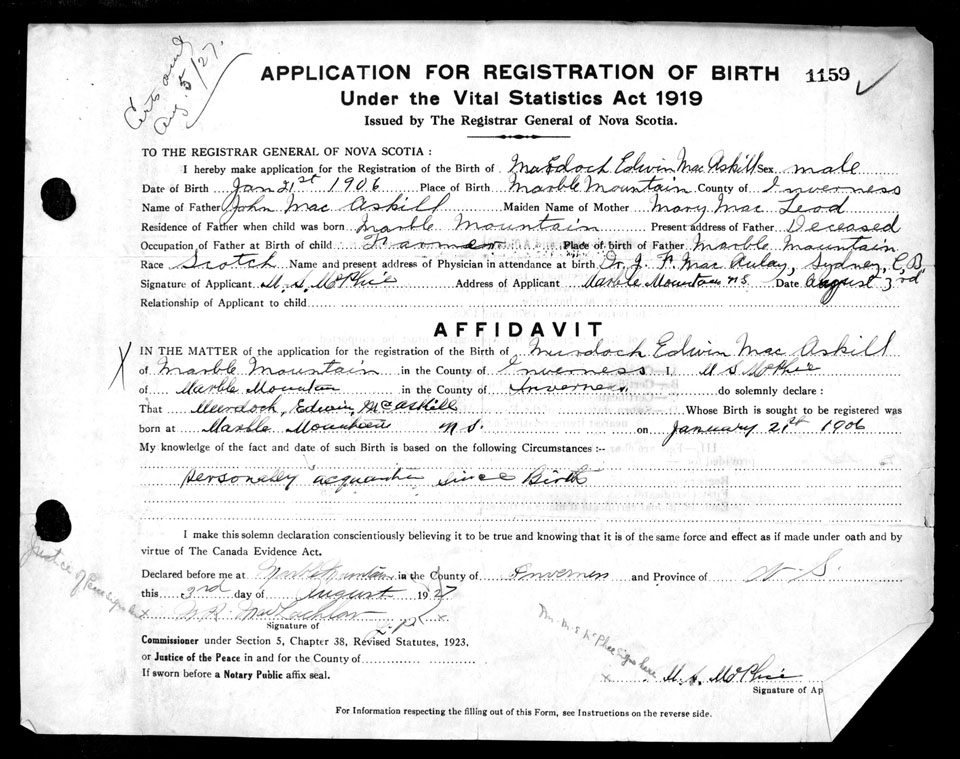 Aug. 5/27.
APPLICATION FOR REGISTRATION OF BIRTH 1159
Under the Vital Statistics Act 1919
Issued by The Registrar General of Nova Scotia.
TO THE REGISTRAR GENERAL OF NOVA SCOTIA :
I hereby make application for the Registration of the Birth of Murdoch Edwin MacAskill Sex male
Date of Birth Jan 21st 1906 Place of Birth Marble Mountain County of Inverness
Name of Father John Mac Askill Maiden Name of Mother Mary Mac Leod
Residence of Father when child was born Marble Mountain Present address of Father Deceased
Occupation of Father at Birth of child Farmer Place of birth of Father Marble Mountain
Race Scotch Name and present address of Physician in attendance at birth Dr. J. F. Mac Aulay, Sydney, C.B.
Signature of Applicant M. S. McPhie Address of Applicant Marble Mountain NS Date August 3rd
Relationship of Applicant to child
AFFIDAVIT
X IN THE MATTER of the application for the registration of the Birth of Murdoch Edwin Mac Askill
of Marble Mountain in the County of Inverness I, M S McPhie
of Marble Mountain in the County of Inverness do solemnly declare :
That Murdoch, Edwin McAskill Whose Birth is sought to be registered was
born at Marble Mountain N S. on January 21st 1906
My knowledge of the fact and date of such Birth is based on the following Circumstances :--
personally since Birth
I make this solemn declaration conscientiously believing it to be true and knowing that it is of the same force and effect as if made under oath and by
virtue of The Canada Evidence Act.
Declared before me at Marble Mountain in the County of Inverness and Province of N. S.
this 3rd day of August 1927
Justice of Peace sign here x
MacLachlan x
Signature of J.P.
Commissioner under Section 5, Chapter 38, Revised Statutes, 1923,
or Justice of the Peace in and for the County of
If sworn before a Notary Public affix seal.
Mr. M. S McPhee sign here
x M. S. McPhie
Signature of Ap
For Information respecting the filling out of this Form, see Instructions on the reverse side.